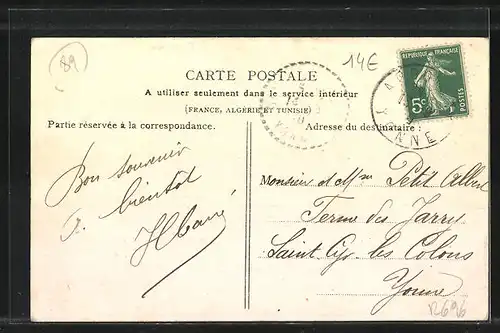 89
14€
RÉPUBLIQUE FRANÇAISE
POSTES
5c
YONNE
CARTE POSTALE
A utiliser seulement dans le service intérieur
(FRANCE, ALGÉRIE ET TUNISIE)
Partie réservée à la correspondance.
Adresse du destinataire:
Bon souvenir
à bientôt
Monsieur et Mme Petit Albert
Ferme des Jarry
Saint Cyr les Colons
Yonne
R696